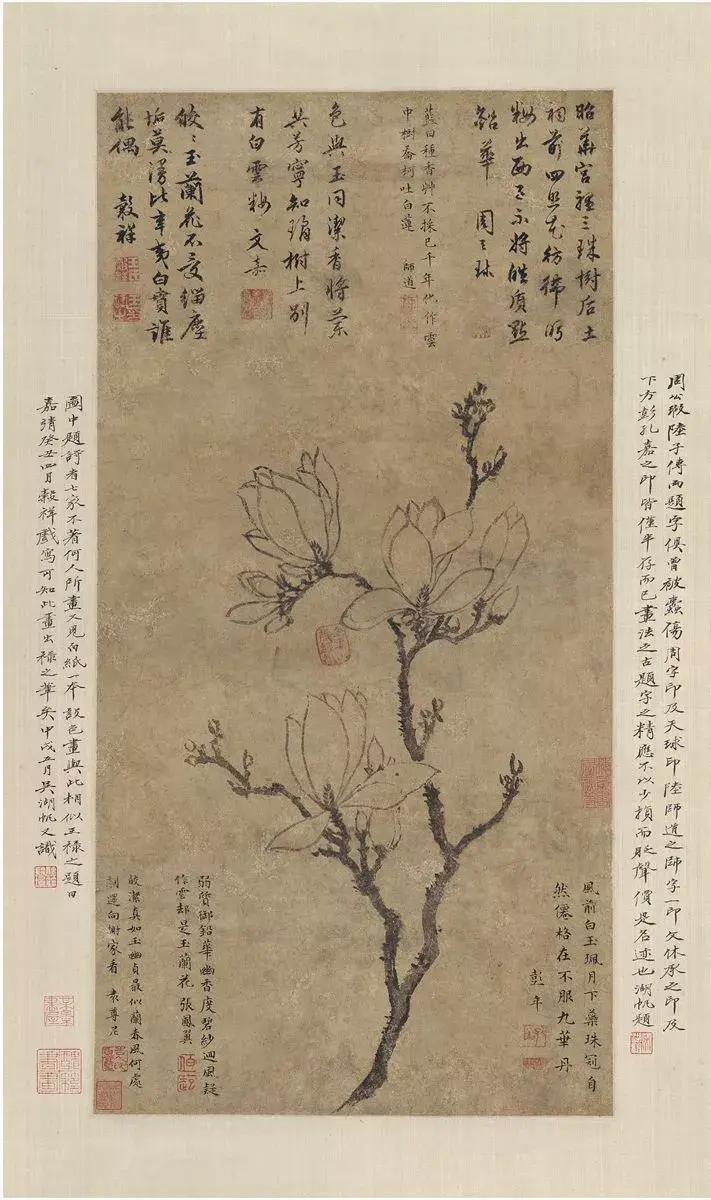 周公瑕陸子傳兩題字俱曾被蠹傷周字印及天球印陸師道之師字一印文休承之印及
下方彭孔嘉之印皆僅半存而已畫法之古題字之精應不以少損而貶聲價是名迹也湖帆題
昭華宮裡三珠樹后土
祠前四照花彷彿
妝出西不將皓質點
鉛華 周天球
藍田種香艸不採已千年化作雲
中樹喬柯吐白蓮 師道
色與玉同潔香將蘭
共芳寧知瑤樹上別
有白雲妝 文嘉
皎〻玉蘭花不受緇塵
垢莫漫比辛夷白賁誰
能偶 穀祥
風前白玉珮月下蕊珠冠自
然僊格在不服九華丹
彭年
弱質御鉛華幽香度碧紗迴風疑
作雪却是玉蘭花 張鳳翼
皎潔真如玉幽貞最似蘭春風何處
還向謝家看 袁尊尼
圖中題詩者七家不著何人所畫又見白紙一本設色畫與此相似王祿之題曰
嘉靖癸丑四月穀祥戲寫可知此畫出祿之筆矣甲戌五月吳湖帆又識